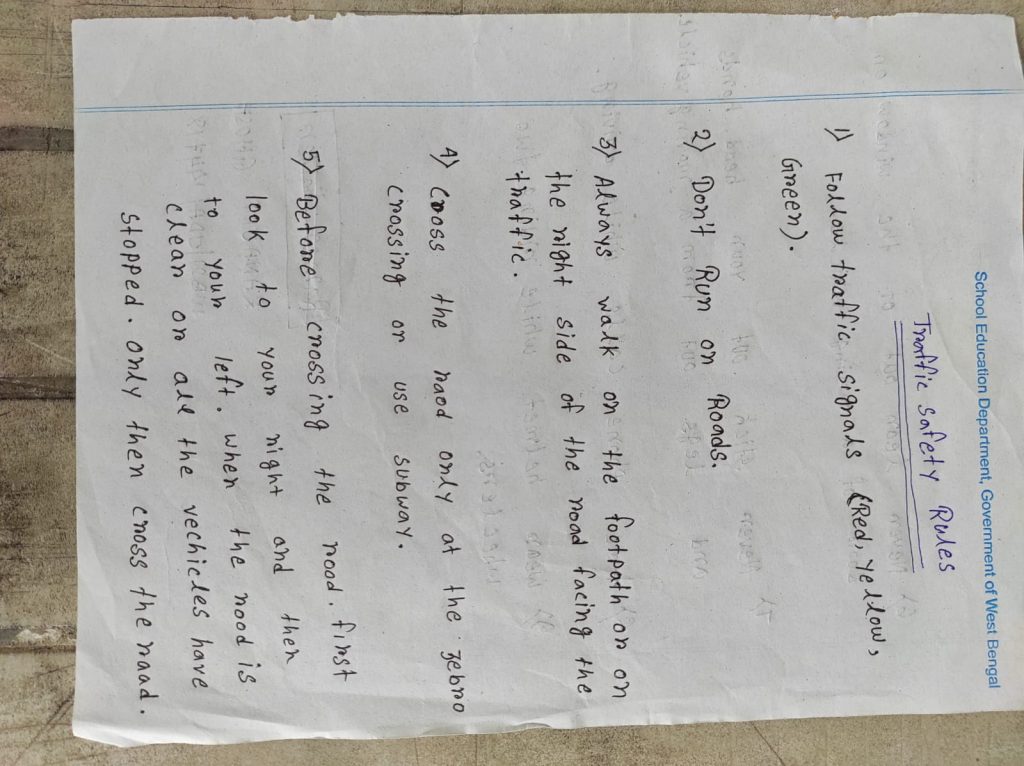 School Education Department, Government of West Bengal
Traffic safety Rules
1) Follow traffic signals (Red, Yellow,
Green).
2) Don't Run on Roads.
3) Always walk on the footpath or on
the right side of the road facing the
traffic.
4) Cross the raod only at the zebra
crossing or use subway.
5) Before crossing the road. first
look to your right and then
to your left. when the road is
clear or all the vechicles have
stopped. only then cross the road.